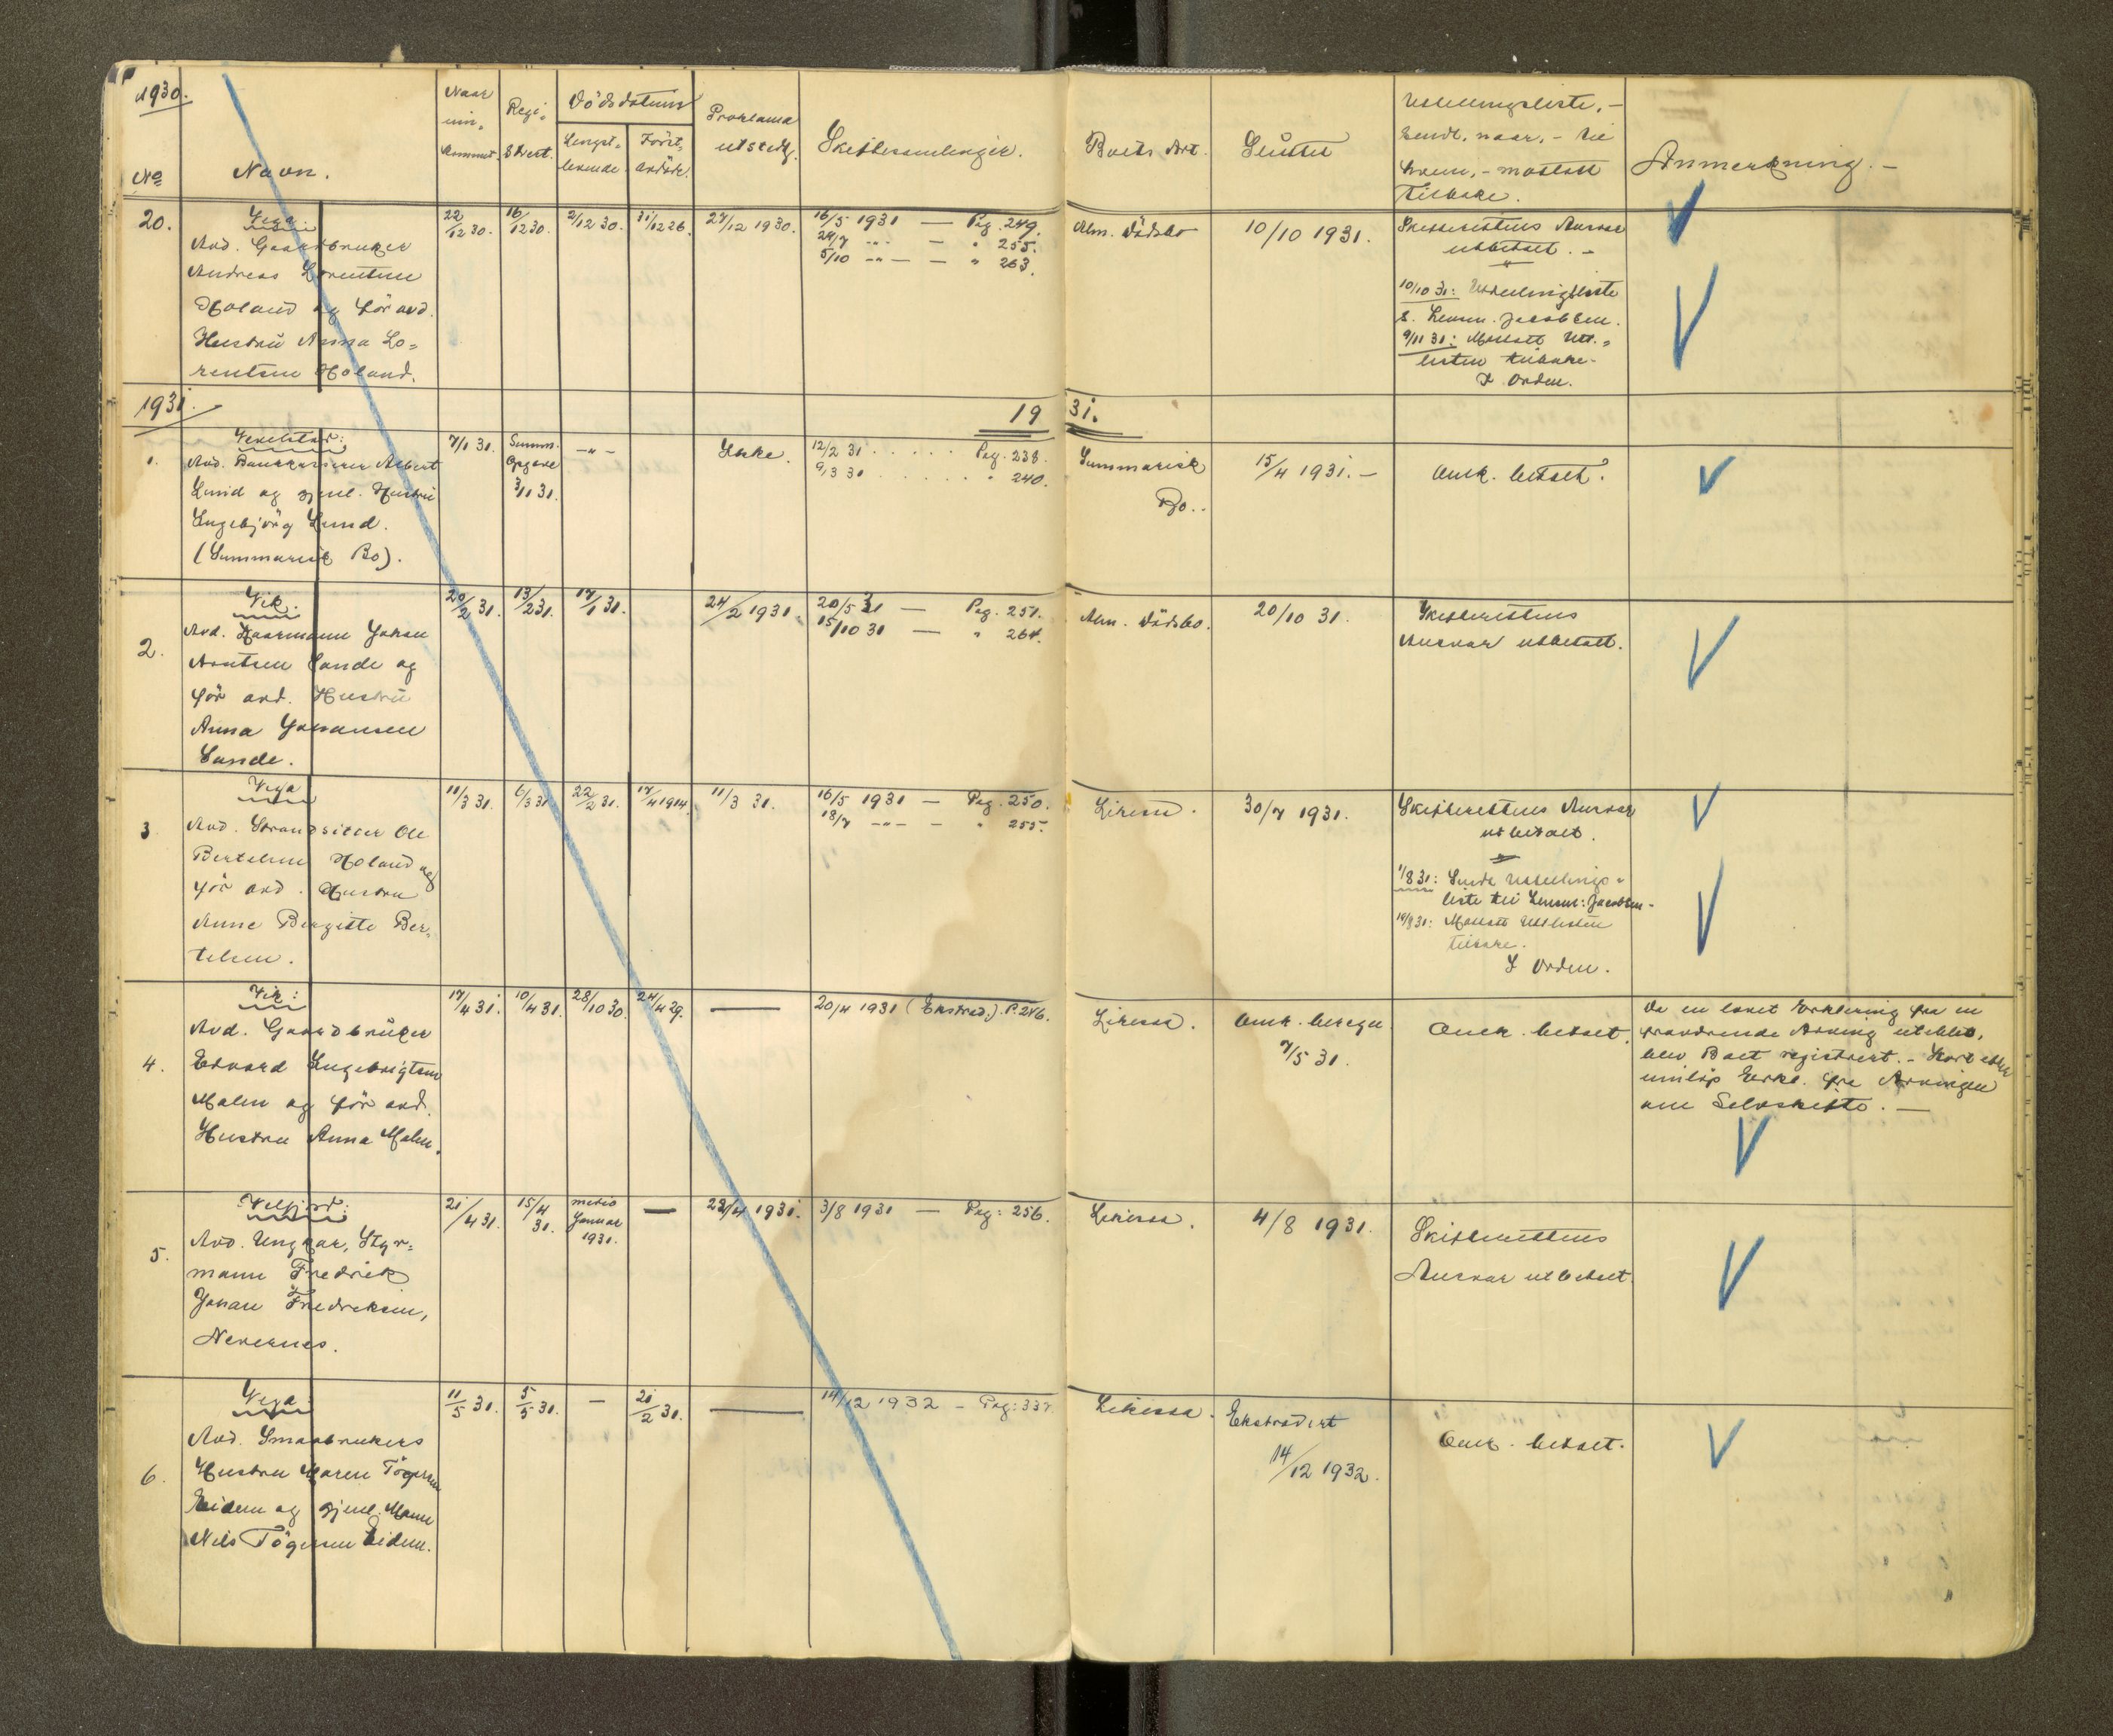 1930.
No
Navn.
Naar
inn-
kommet.
Regi-
strert.
Dödsdatum
Lengst-
levende.
Först-
avdöde.
Proklama
utstedt.
Skiftesamlinger.
Boets Art.
Sluttet
Utdelingsliste, -
sendt, naar, - til
hvem, - mottatt
tilbake.
Anmerkning. -
20.
Vega:
Avd. Gaardbruker
Andreas Lorentsen
Holand og för avd.
Hustru Anna Lo-
rentsen Holand.
22/12 30.
16/12 30.
2/12 30.
31/12 26.
27/12 1930.
16/5 1931 — Pag. 249.
29/7 -"- — " 255.
5/10 -"- — " 263.
Alm. Dödsbo
10/10 1931.
Skifterettens Ansvar
utbetalt. -
10/10 31: Utdelingsliste
t. Lensm. Jacobsen.
9/11 31: Mottatt Utd.-
listen tilbake.
I Orden.
1931.
1931.
1.
Vevelstad:
Avd. Bankkasserer Albert
Lund og gjenl. Hustru
Ingebjörg Lund.
(Summarisk Bo).
7/1 31.
Summ.
Opgave
3/11 31.
-"-
Ikke.
12/2 31 . . . . . Pag. 238.
9/3 31 . . . . . " 240.
Summarisk
Bo.
15/4 1931. -
Omk. betalt.
2.
Vik:
Avd. Kaarmann Johan
Arntsen Sande og
för avd. Hustru
Anna Johansen
Sande.
20/2 31.
13/2 31.
17/1 31.
24/2 1931.
20/5 31 — Pag. 251.
15/10 31 — " 264.
Alm. Dödsbo.
20/10 31.
Skifterettens
Ansvar utbetalt.
3
Vega
Avd. Strandsitter Ole
Bertelsen Holand og
för avd. Hustru
Anne Birgitte Ber-
telsen.
11/3 31.
6/3 31.
22/2 31.
17/4 1914.
11/3 31.
16/5 1931 — Pag. 250.
18/7 -"- — " 255.
Likesaa.
30/7 1931.
Skifterettens Ansvar
utbetalt.
1/8 31: Sendt Utdelings-
liste til Lensm: Jacobsen -
19/8 31: Mottatt Utd listen
tilbake.
I Orden.
4.
Vik:
Avd. Gaardbruker
Edvard Ingebrigtsen
Malm og för avd.
Hustru Anna Malm.
17/4 31.
10/4 31.
28/10 30.
24/4 29.
—
20/4 1931 (Ekstrad.) P. 246.
Likesaa.
Omk. beregn.
7/5 31.
Omk. betalt.
Da en lovet Erklæring fra en
fraværende Arving uteblev,
blev Boet registrert. - Kort efter
innlöp Erkl. fra Arvingen
om Selvskifte. —
5.
Velfjord:
Avd. Ungkar, Styr-
mann Fredrik
Johan Fredriksen,
Nevernes.
21/4 31.
15/4
31.
medio
Januar
1931.
—
22/4 1931.
3/8 1931 — Pag: 256.
Likesaa.
4/8 1931.
Skifterettens
Ansvar utbetalt.
6.
Vega:
Avd. Smaabrukers
Hustru Maren Tögersen
Eidem og gjenl. Mann
Nils Tögersen Eidem.
11/5 31.
5/5 31.
—
21/2 31.
—
14/12 1932 - Pag: 337.
Likesaa.
Ekstradert
14/12 1932.
Omk. betalt.